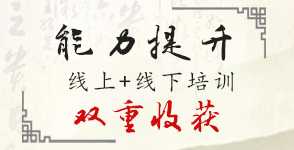 能力提升
线上+线下培训
双重收获